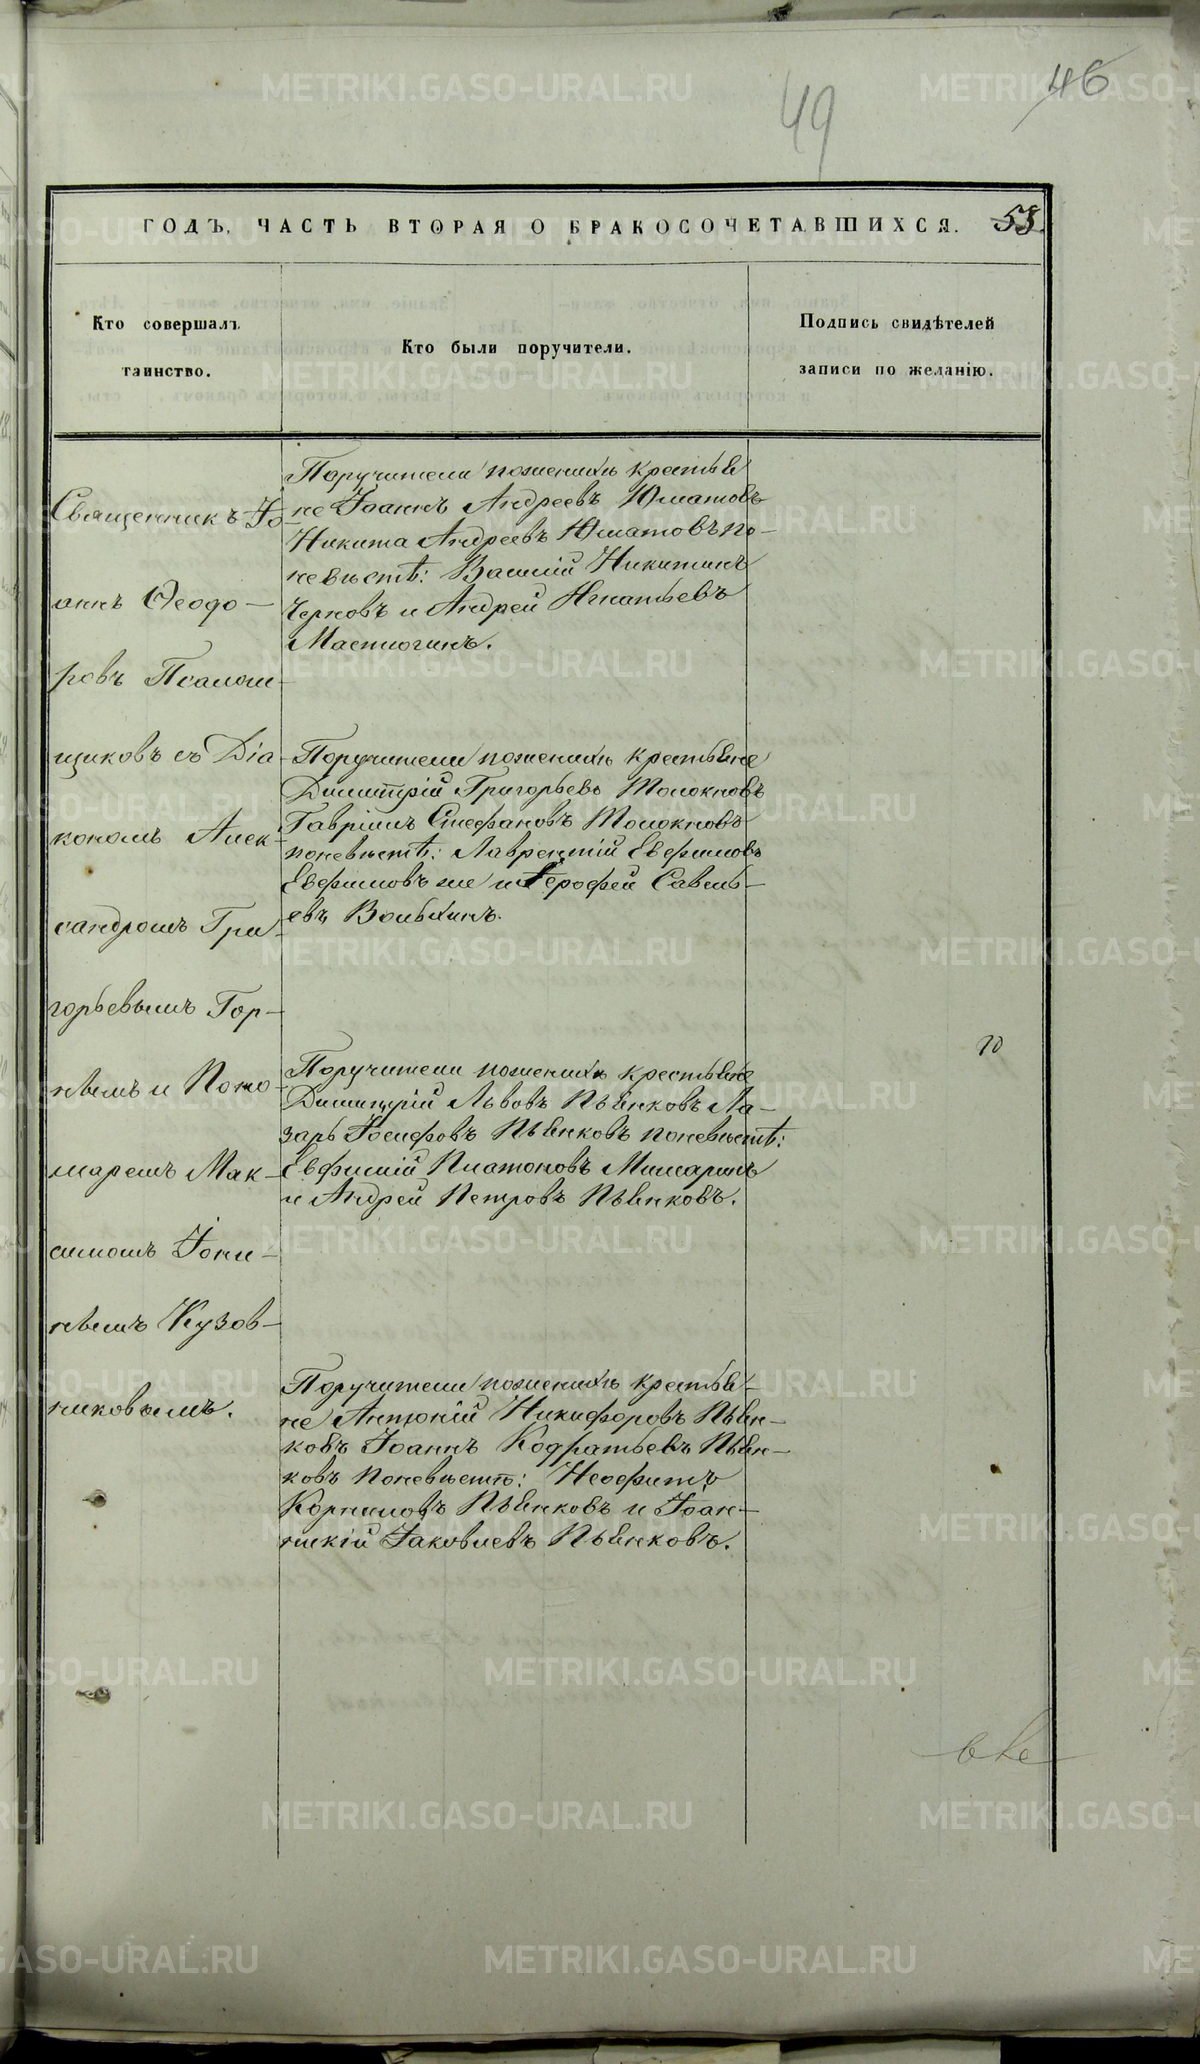 49
46
ГОДЪ, ЧАСТЬ ВТОРАЯ О БРАКОСОЧЕТАВШИХСЯ.
Кто совершалъ
таинство.
Кто были поручители.
Подпись свидѣтелей
записи по желанію.
Священникъ Іо-
аннъ Ѳеодо-
ровъ Псалом-
щиковъ съ Діа-
кономъ Алек-
сандромъ Гри-
горьевымъ Гор-
нымъ и Поно-
маремъ Мак-
симомъ Іони-
нымъ Кузов-
никовымъ.
Поручители поженихѣ крестья
не Іоаннъ Андреевъ Юматовъ
Никита Андреевъ Юматовъ по-
невѣстѣ: Василій Никитинъ
Черновъ и Андрей Игнатьевъ
Маслюгинъ.
Поручители поженихѣ крестьяне
Димитрій Григорьевъ Толокновъ
Гавріилъ Стефановъ Толокновъ
поневѣстѣ: Лаврентій Евфимовъ
Евфимовъ же и Іерофей Савель-
евъ Волынинъ.
Поручители поженихѣ крестьяне
Димитрій Львовъ Пьянковъ Ла-
зарь Іосифовъ Пьянковъ поневѣстѣ:
Евфимій Платоновъ Мишаринъ
и Андрей Петровъ Пьянковъ.
Поручители поженихѣ крестья-
не Антоній Никифоровъ Пьян-
ковъ Іоаннъ Кодратьевъ Пьян-
ковъ поневѣстѣ: Неофитъ
Корниловъ Пьянковъ и Іоан-
никій Іаковлевъ Пьянковъ.
METRIKI.GASO-URAL.RU